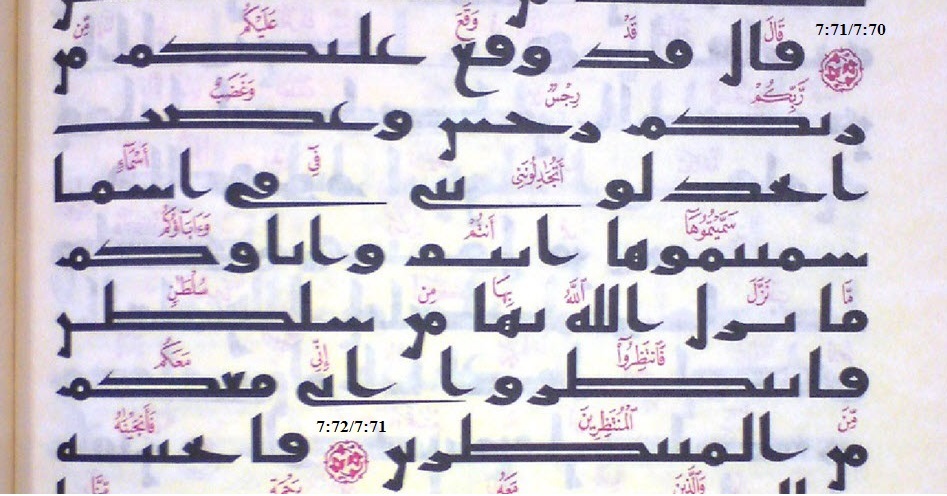 7:71/7:70 قَالَ قَدْ وَقَعَ عَلَيْكُم مِّن
قال قد وقع عليكم من
رَّبِّكُمْ رِجْسٌ وَغَضَبٌ
ربكم رجس وغضب
أَتُجَٰدِلُونَنِى فِىٓ أَسْمَآءٍ
اتجدلوننى فى اسما
سَمَّيْتُمُوهَآ أَنتُمْ وَءَابَآؤُكُم
سميتموها انتم واباوكم
مَّا نَزَّلَ ٱللَّهُ بِهَا مِن سُلْطَٰنٍ
ما نزل الله بها من سلطن
فَٱنتَظِرُوٓا۟ إِنِّى مَعَكُم
فانتظروا انى معكم
مِّنَ ٱلْمُنتَظِرِينَ 7:72/7:71 فَأَنجَيْنَٰهُ
من المنتظرين فانجينه
وَٱلَّذِينَ مَعَهُۥ بِرَحْمَةٍ مِّنَّا